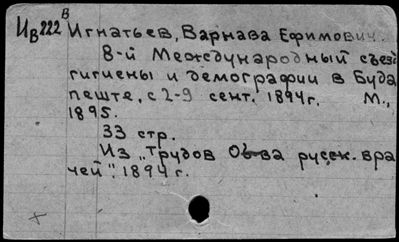 Ив222 в
Игнатьев, Варнава Ефимович.
8-й Международный съезд
гигиены и демографии в Буда
пеште, с 2-9 сент. 1894г. М.,
1895.
33 стр.
Из „Трудов Об-ва русск. вра
чей". 1894 г.